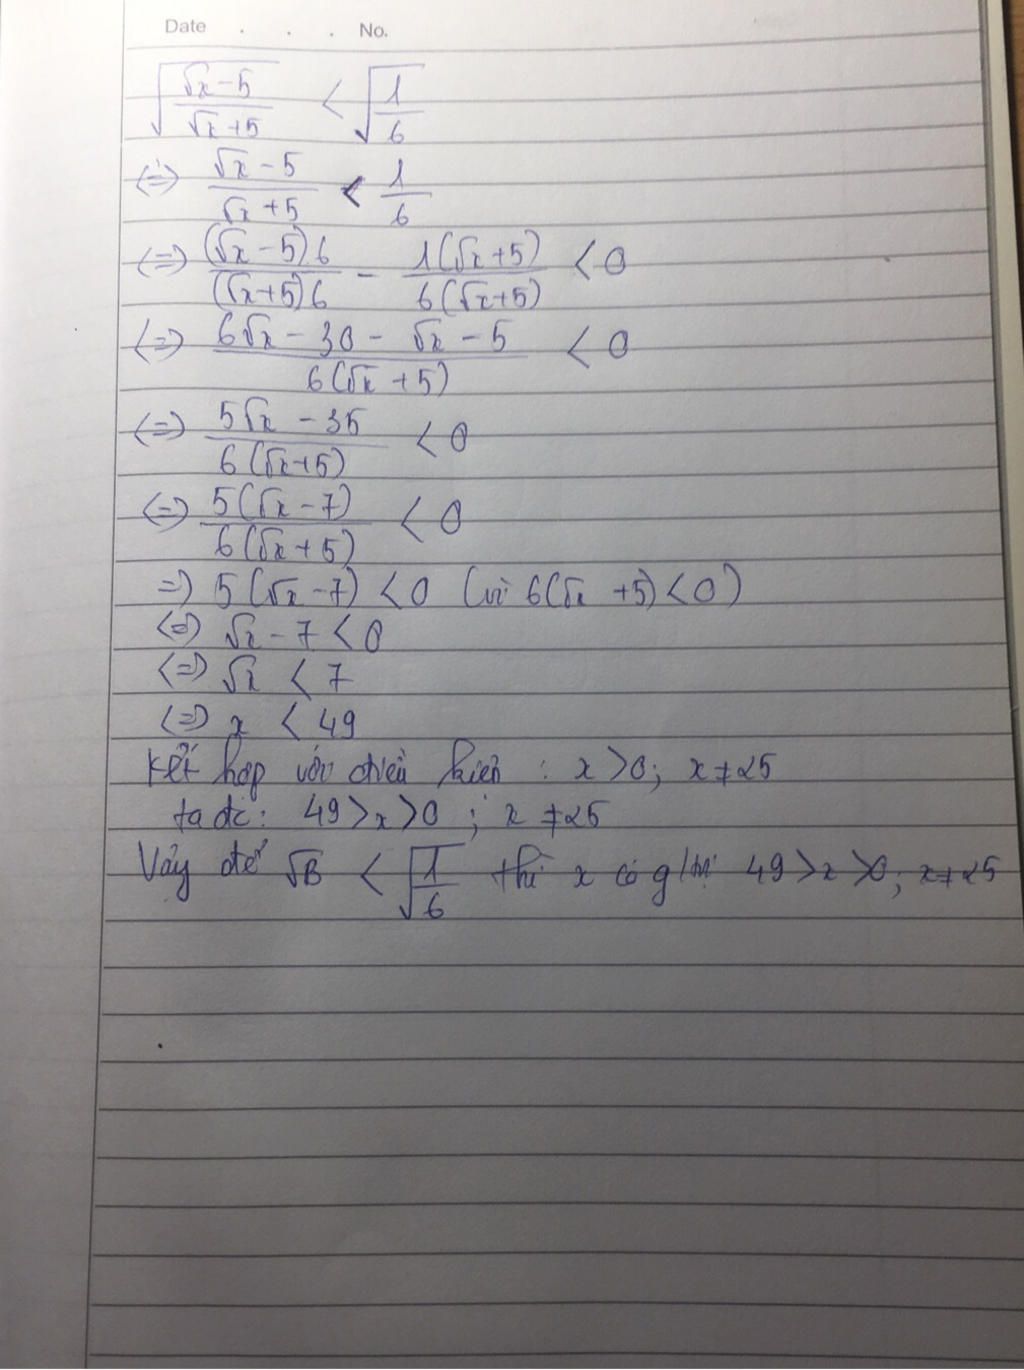 Date . . . No.
√((√x - 5)/(√x + 5)) < √(1/6)
(=) (√x - 5)/(√x + 5) < 1/6
(=) ((√x - 5)6)/((√x+5)6) - (1(√x+5))/(6(√x+5)) < 0
(=) (6√x - 30 - √x - 5)/(6(√x + 5)) < 0
(=) (5√x - 35)/(6(√x+5)) < 0
(=) (5(√x - 7))/(6(√x + 5)) < 0
=) 5(√x - 7) < 0 (vì 6(√x + 5) < 0)
(=) √x - 7 < 0
(=) √x < 7
(=) x < 49
Kết hợp với điều kiện : x > 0; x ≠ 25
ta đc: 49 > x > 0 ; x ≠ 25
Vậy để √B < √(1/6) thì x có g/trị 49 > x > 0; x ≠ 25